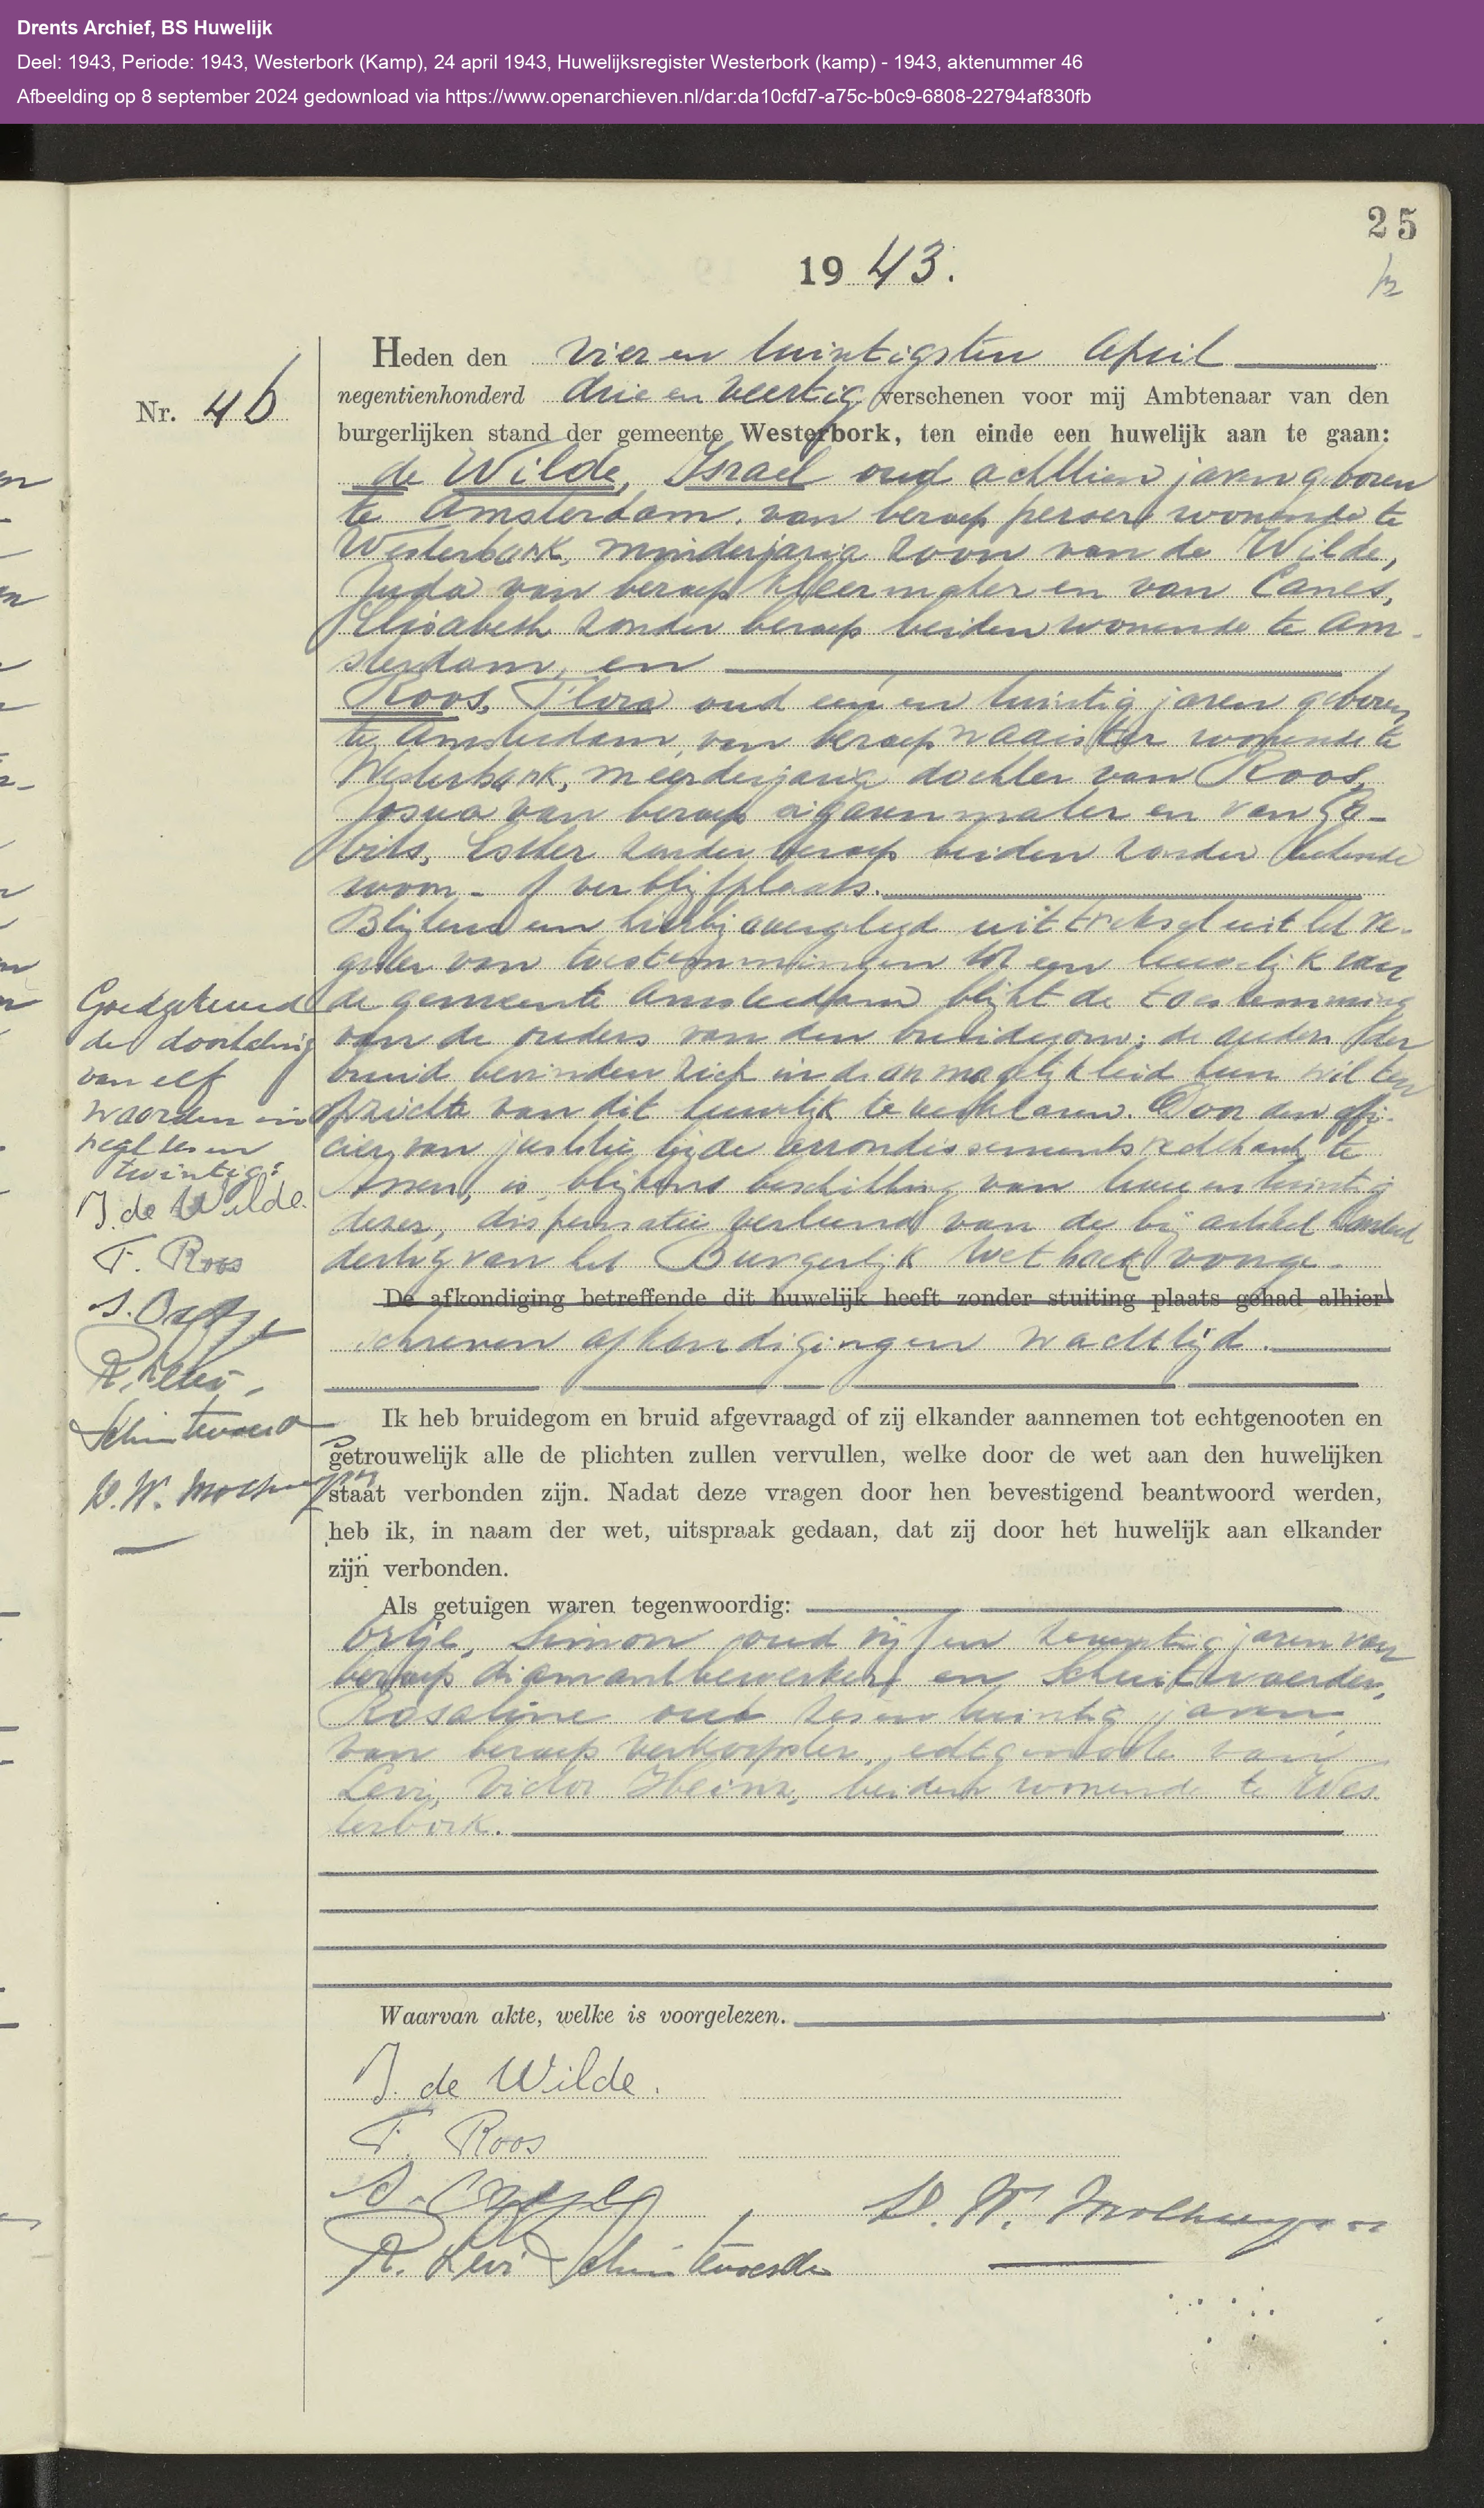 Drents Archief, BS Huwelijk
Deel: 1943, Periode: 1943, Westerbork (Kamp), 24 april 1943, Huwelijksregister Westerbork (kamp) - 1943, aktenummer 46
Afbeelding op 8 september 2024 gedownload via https://www.openarchieven.nl/dar:da10cfd7-a75c-b0c9-6808-22794af830fb
25
1943.
Nr. 46
Heden den vier en twintigsten April
negentienhonderd drie en veertig verschenen voor mij Ambtenaar van den
burgerlijken stand der gemeente Westerbork, ten einde een huwelijk aan te gaan:
de Wilde, Israel oud achttien jaren geboren
te Amsterdam, van beroep perser wonende te
Westerbork, minderjarig zoon van de Wilde,
Juda van beroep kleermaker en van Canes,
Elisabeth zonder beroep beiden wonende te Am-
sterdam, en
Roos, Flora oud een en twintig jaren geboren
te Amsterdam, van beroep naaister wonende te
Westerbork, meerderjarig dochter van Roos,
Josua van beroep sigarenmaker en van
Esther zonder beroep beiden zonder bekende
woon- of verblijfplaats.
Blijkens een hierbij overgelegd uittreksel uit het re-
gister van toestemmingen tot een huwelijk van
de gemeente Amsterdam blijkt de toestemming
van de ouders van den bruidegom; de ouders der
bruid bevinden zich in de onmogelijkheid hun wil ten
opzichte van dit huwelijk te verklaren. Door den offi-
cier van justitie bij de arrondissements rechtbank te
Assen, is, blijkens beschikking van twee en twintig
dezer, dispensatie verleend van de bij artikel honderd
dertig van het Burgerlijk Wetboek voorge-
De afkondiging betreffende dit huwelijk heeft zonder stuiting plaats gehad alhier
schreven afkondigingen wachttijd.
Goedgekeurd
de doorhaling
van elf
woorden in
regel zes en
twintig:
J. de Wilde.
F. Roos
Ik heb bruidegom en bruid afgevraagd of zij elkander aannemen tot echtgenooten en
getrouwelijk alle de plichten zullen vervullen, welke door de wet aan den huwelijken
staat verbonden zijn. Nadat deze vragen door hen bevestigend beantwoord werden,
heb ik, in naam der wet, uitspraak gedaan, dat zij door het huwelijk aan elkander
zijn verbonden.
Als getuigen waren tegenwoordig:
Ortje, Simon oud vijf en zeventig jaren van
beroep diamantbewerker en Schuitevoerder,
Rosaline oud zes en twintig jaren
van beroep verkoopster, echtgenoote van
Levi, Victor Heinz, beiden wonende te Wes-
terbork.
Waarvan akte, welke is voorgelezen.
J. de Wilde.
F. Roos
R. Levi Schuitevoerder